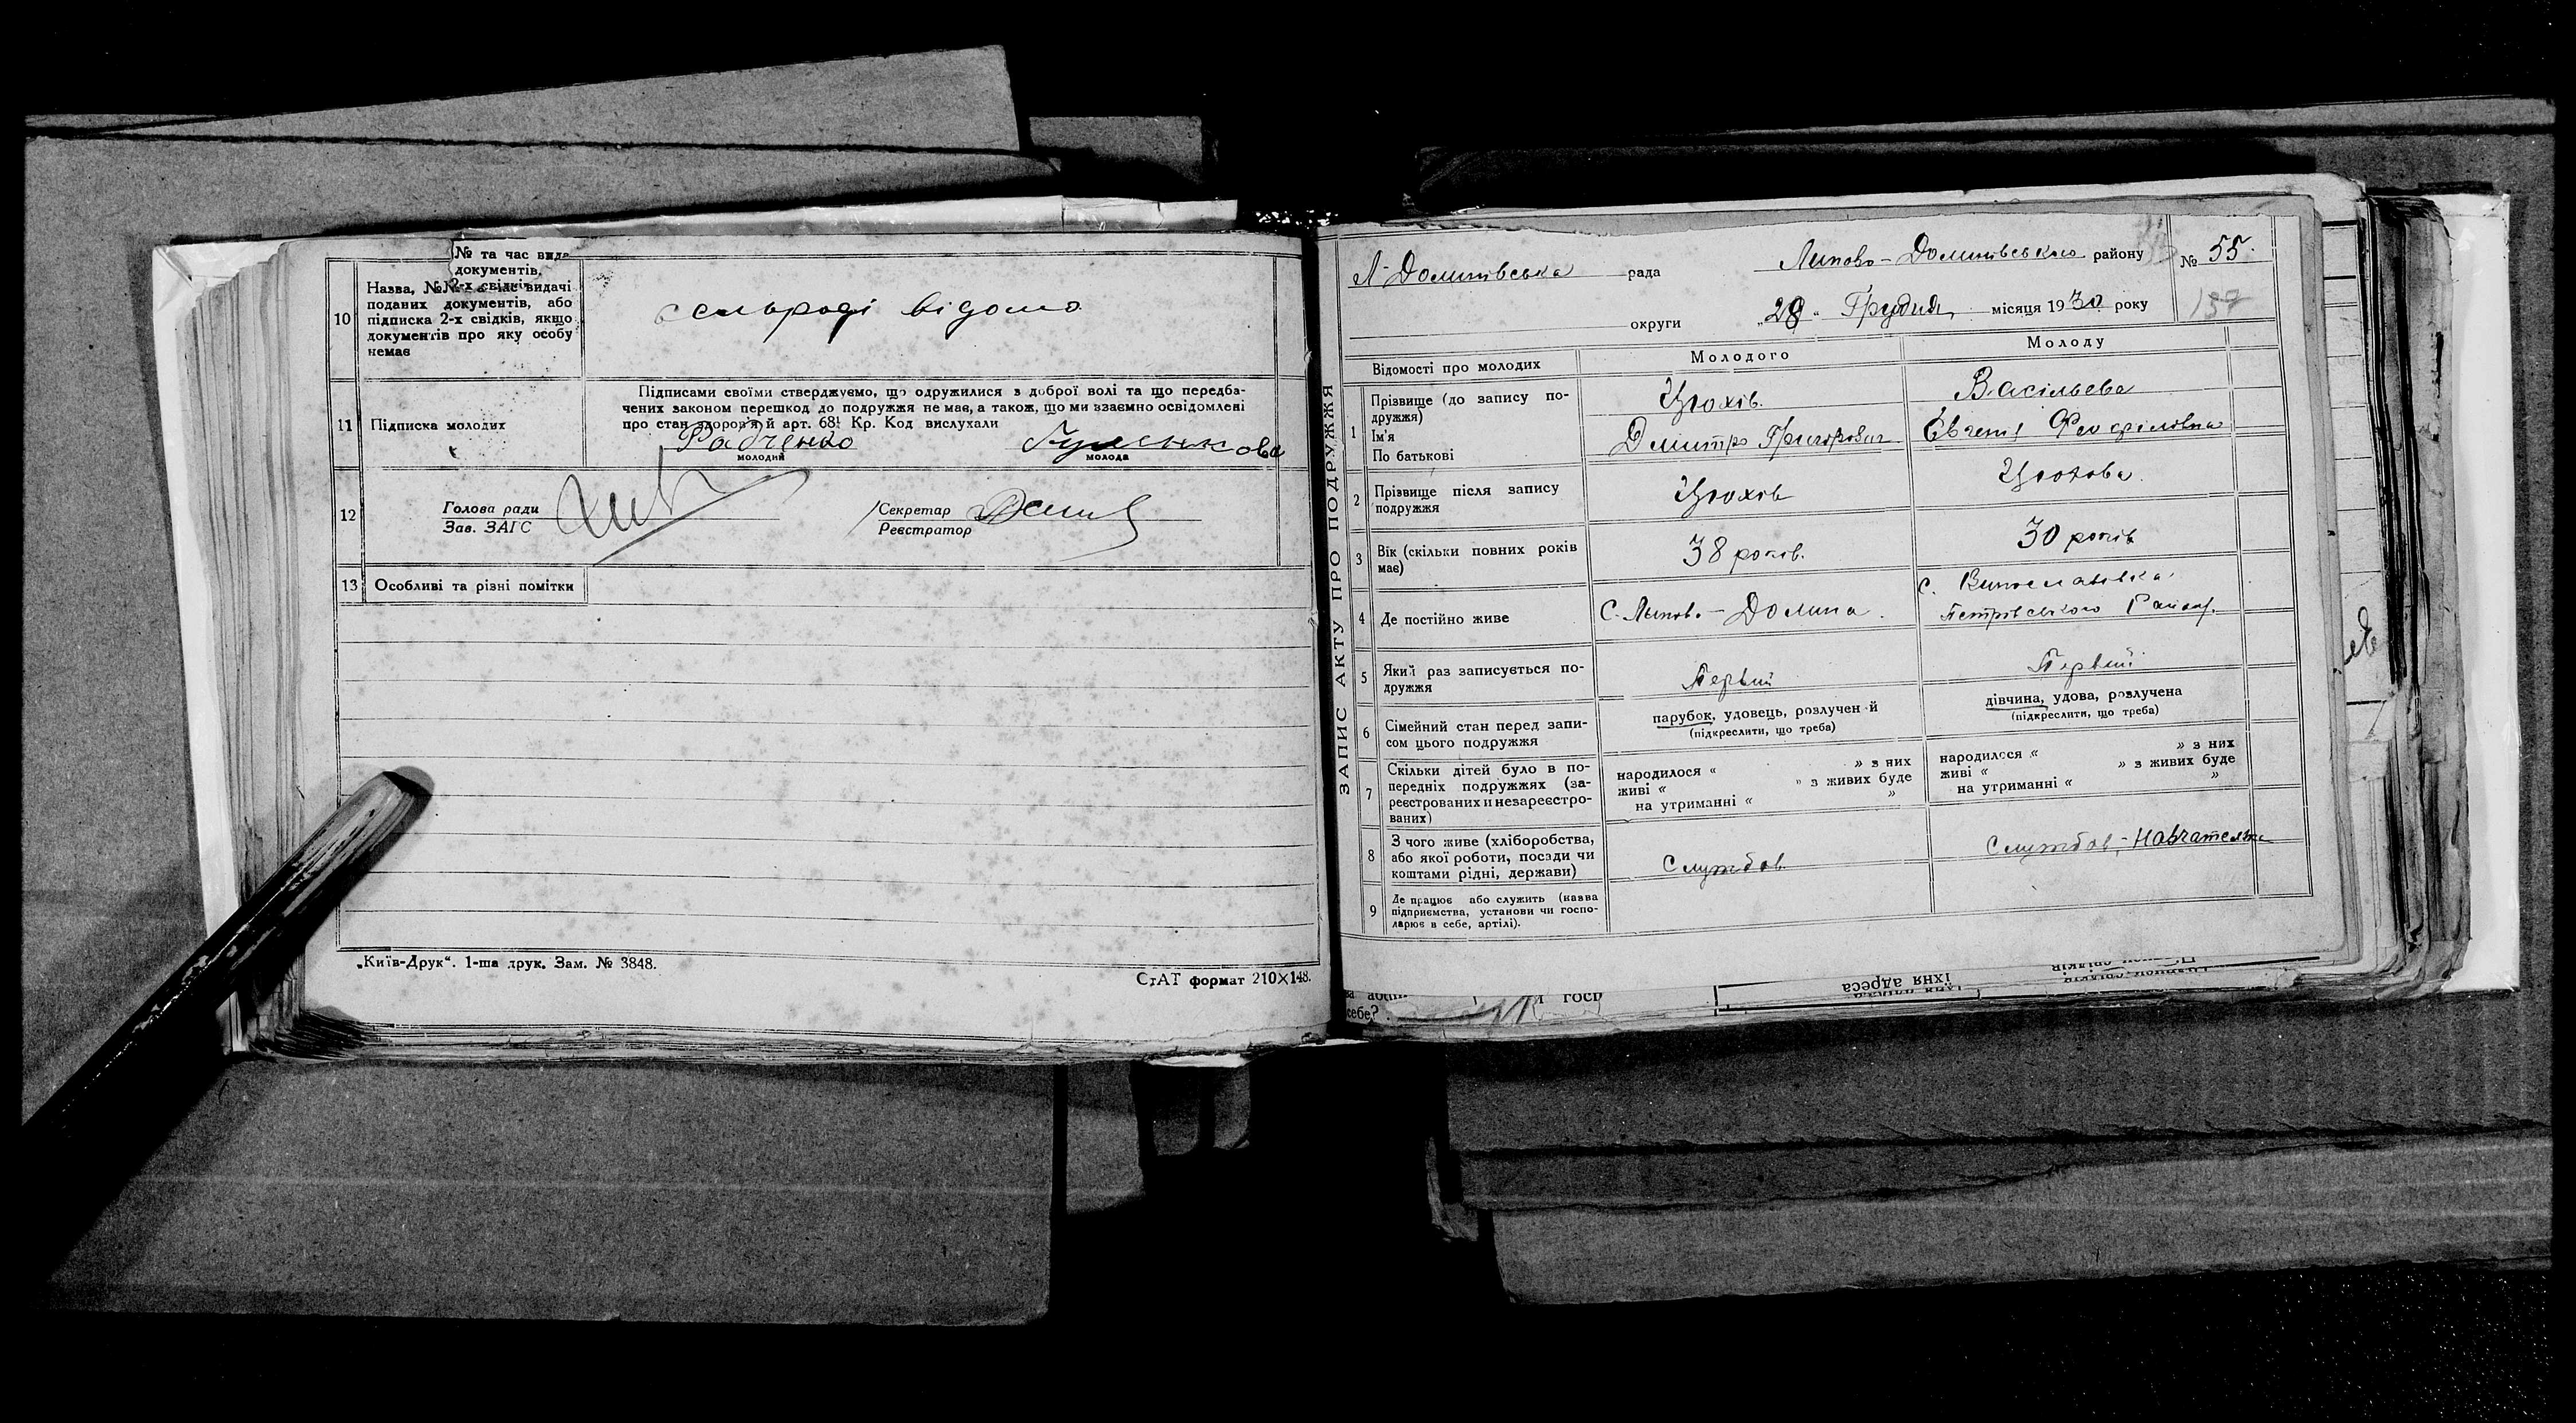 № та час вида
документів,
2-х свідків
10
Назва, №№ час видачі
поданих документів, або
підписка 2-х свідків, якщо
документів про яку особу
немає
сельраді відомо
11
Підписка молодих
Підписами своїми стверджуємо, що одружилися з доброї волі та що передба-
чених законом перешкод до подружжя не має, а також, що ми взаємно освідомлені
про стан здоров'я й арт. 68¹ Кр. Код вислухали
Радченко
молодий
молода
12
Голова ради
Зав. ЗАГС
Секретар
Реєстратор
13
Особливі та різні помітки
„Київ-Друк“. 1-ша друк. Зам. № 3848.
СтАТ формат 210×148.
ЗАПИС АКТУ ПРО ПОДРУЖЖЯ
Л-Долинівська рада
Липово-Долинівського району
№ 55.
округи
„28“ Грудня місяця 1930 року
157
Відомості про молодих
Молодого
Молоду
1
Прізвище (до запису по-
дружжя)
Ім'я
По батькові
Цюхів.
Дмитро Григорович
Васільєва
Євгенія Феофіловна
2
Прізвище після запису
подружжя
Цюхів
Цюхова.
3
Вік (скільки повних років
має)
38 років.
30 років
4
Де постійно живе
С. Липово-Долина.
с.
Петрівського Району.
5
Який раз записується по-
дружжя
Первий
Первий
6
Сімейний стан перед запи-
сом цього подружжя
парубок, удовець, розлучен й
(підкреслити, що треба)
дівчина, удова, розлучена
(підкреслити, що треба)
7
Скільки дітей було в по-
передніх подружжях (за-
реєстрованих и незареєстро-
ваних)
народилося “ » з них
живі “ » з живих буде
на утриманні “ »
народилося “ » з них
живі “ » з живих буде
на утриманні “ »
8
З чого живе (хліборобства,
або якої роботи, посади чи
коштами рідні, держави)
Службов.
Службов,-Навчателька
9
Де працює або служить (назва
підприємства, установи чи госпо-
дарює в себе, артілі).
госп
себе?
їхня адреса